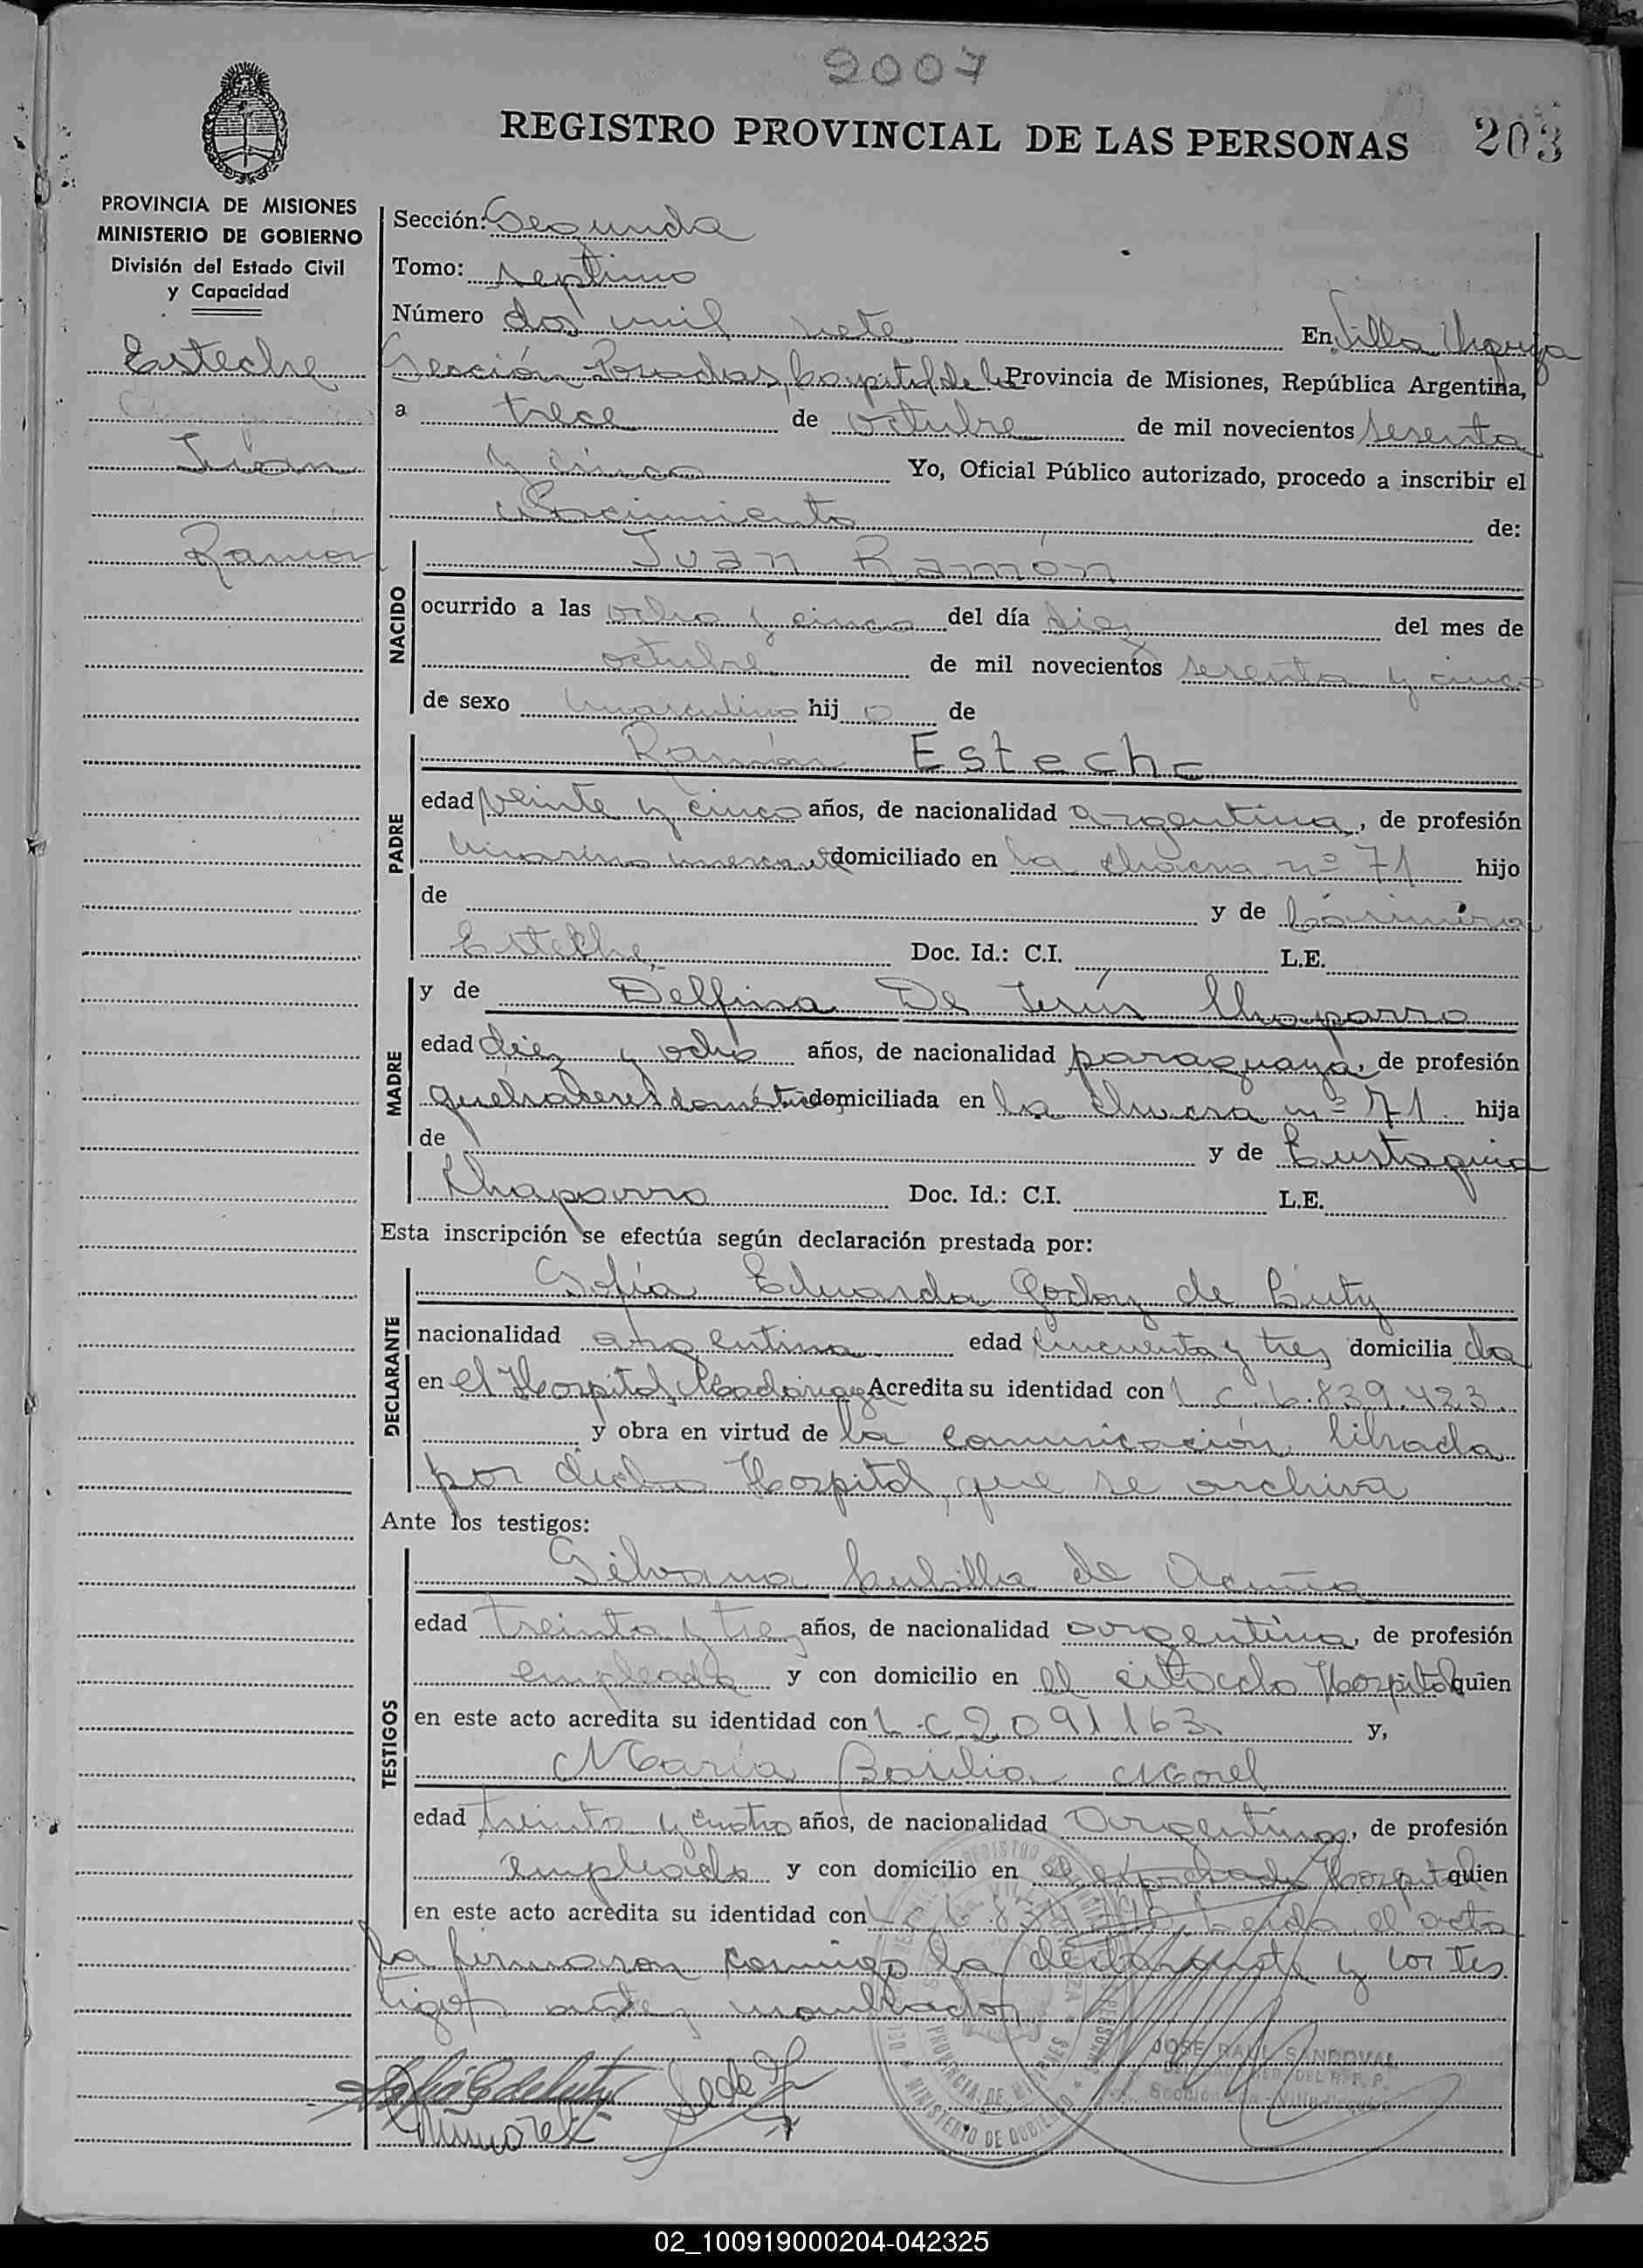 2007
REGISTRO PROVINCIAL DE LAS PERSONAS 203
PROVINCIA DE MISIONES
MINISTERIO DE GOBIERNO
División del Estado Civil
y Capacidad
Esteche
Juan
Ramón
Sección: Segunda
Tomo: septimo
Número dos mil siete En Villa Urquiza
Sección Posadas, capital de la Provincia de Misiones, República Argentina,
a trece de octubre de mil novecientos sesenta
y cinco Yo, Oficial Público autorizado, procedo a inscribir el
Nacimiento de:
NACIDO
Juan Ramón
ocurrido a las ocho y cinco del día diez del mes de
octubre de mil novecientos sesenta y cinco
de sexo masculino hij o de
PADRE
Ramón Esteche
edad veinte y cinco años, de nacionalidad argentina, de profesión
marino mercante domiciliado en la chacra nº 71 hijo
de y de Casimira
Esteche Doc. Id.: C.I. L.E.
MADRE
y de Delfina De Jesús Chaparro
edad diez y ocho años, de nacionalidad paraguaya, de profesión
quehaceres domésticos domiciliada en la chacra nº 71 hija
de y de Eustaquia
Chaparro Doc. Id.: C.I. L.E.
Esta inscripción se efectúa según declaración prestada por:
DECLARANTE
Sofía Eduarda Godoy de Luty
nacionalidad argentina edad cincuenta y tres domicilia da
en el Hospital Madariaga Acredita su identidad con L C 6.839.423
y obra en virtud de la comunicación librada
por dicho Hospital, que se archiva
Ante los testigos:
TESTIGOS
Silvana de Acuña
edad treinta y tres años, de nacionalidad argentina, de profesión
empleada y con domicilio en el citado Hospital quien
en este acto acredita su identidad con L.C 2091163 y,
María Basilia Morel
edad treinta y cuatro años, de nacionalidad Argentina, de profesión
empleada y con domicilio en el expresado Hospital quien
en este acto acredita su identidad con L C 6.839 Leida el acta
la firmaron conmigo la declarante y los tes
tigos antes nombrados
JOSE RAUL SANDOVAL
DEL R.P.P.
Sección 2da - Villa Urquiza
PROVINCIA DE MISIONES
MINISTERIO DE GOBIERNO
02_100919000204-042325